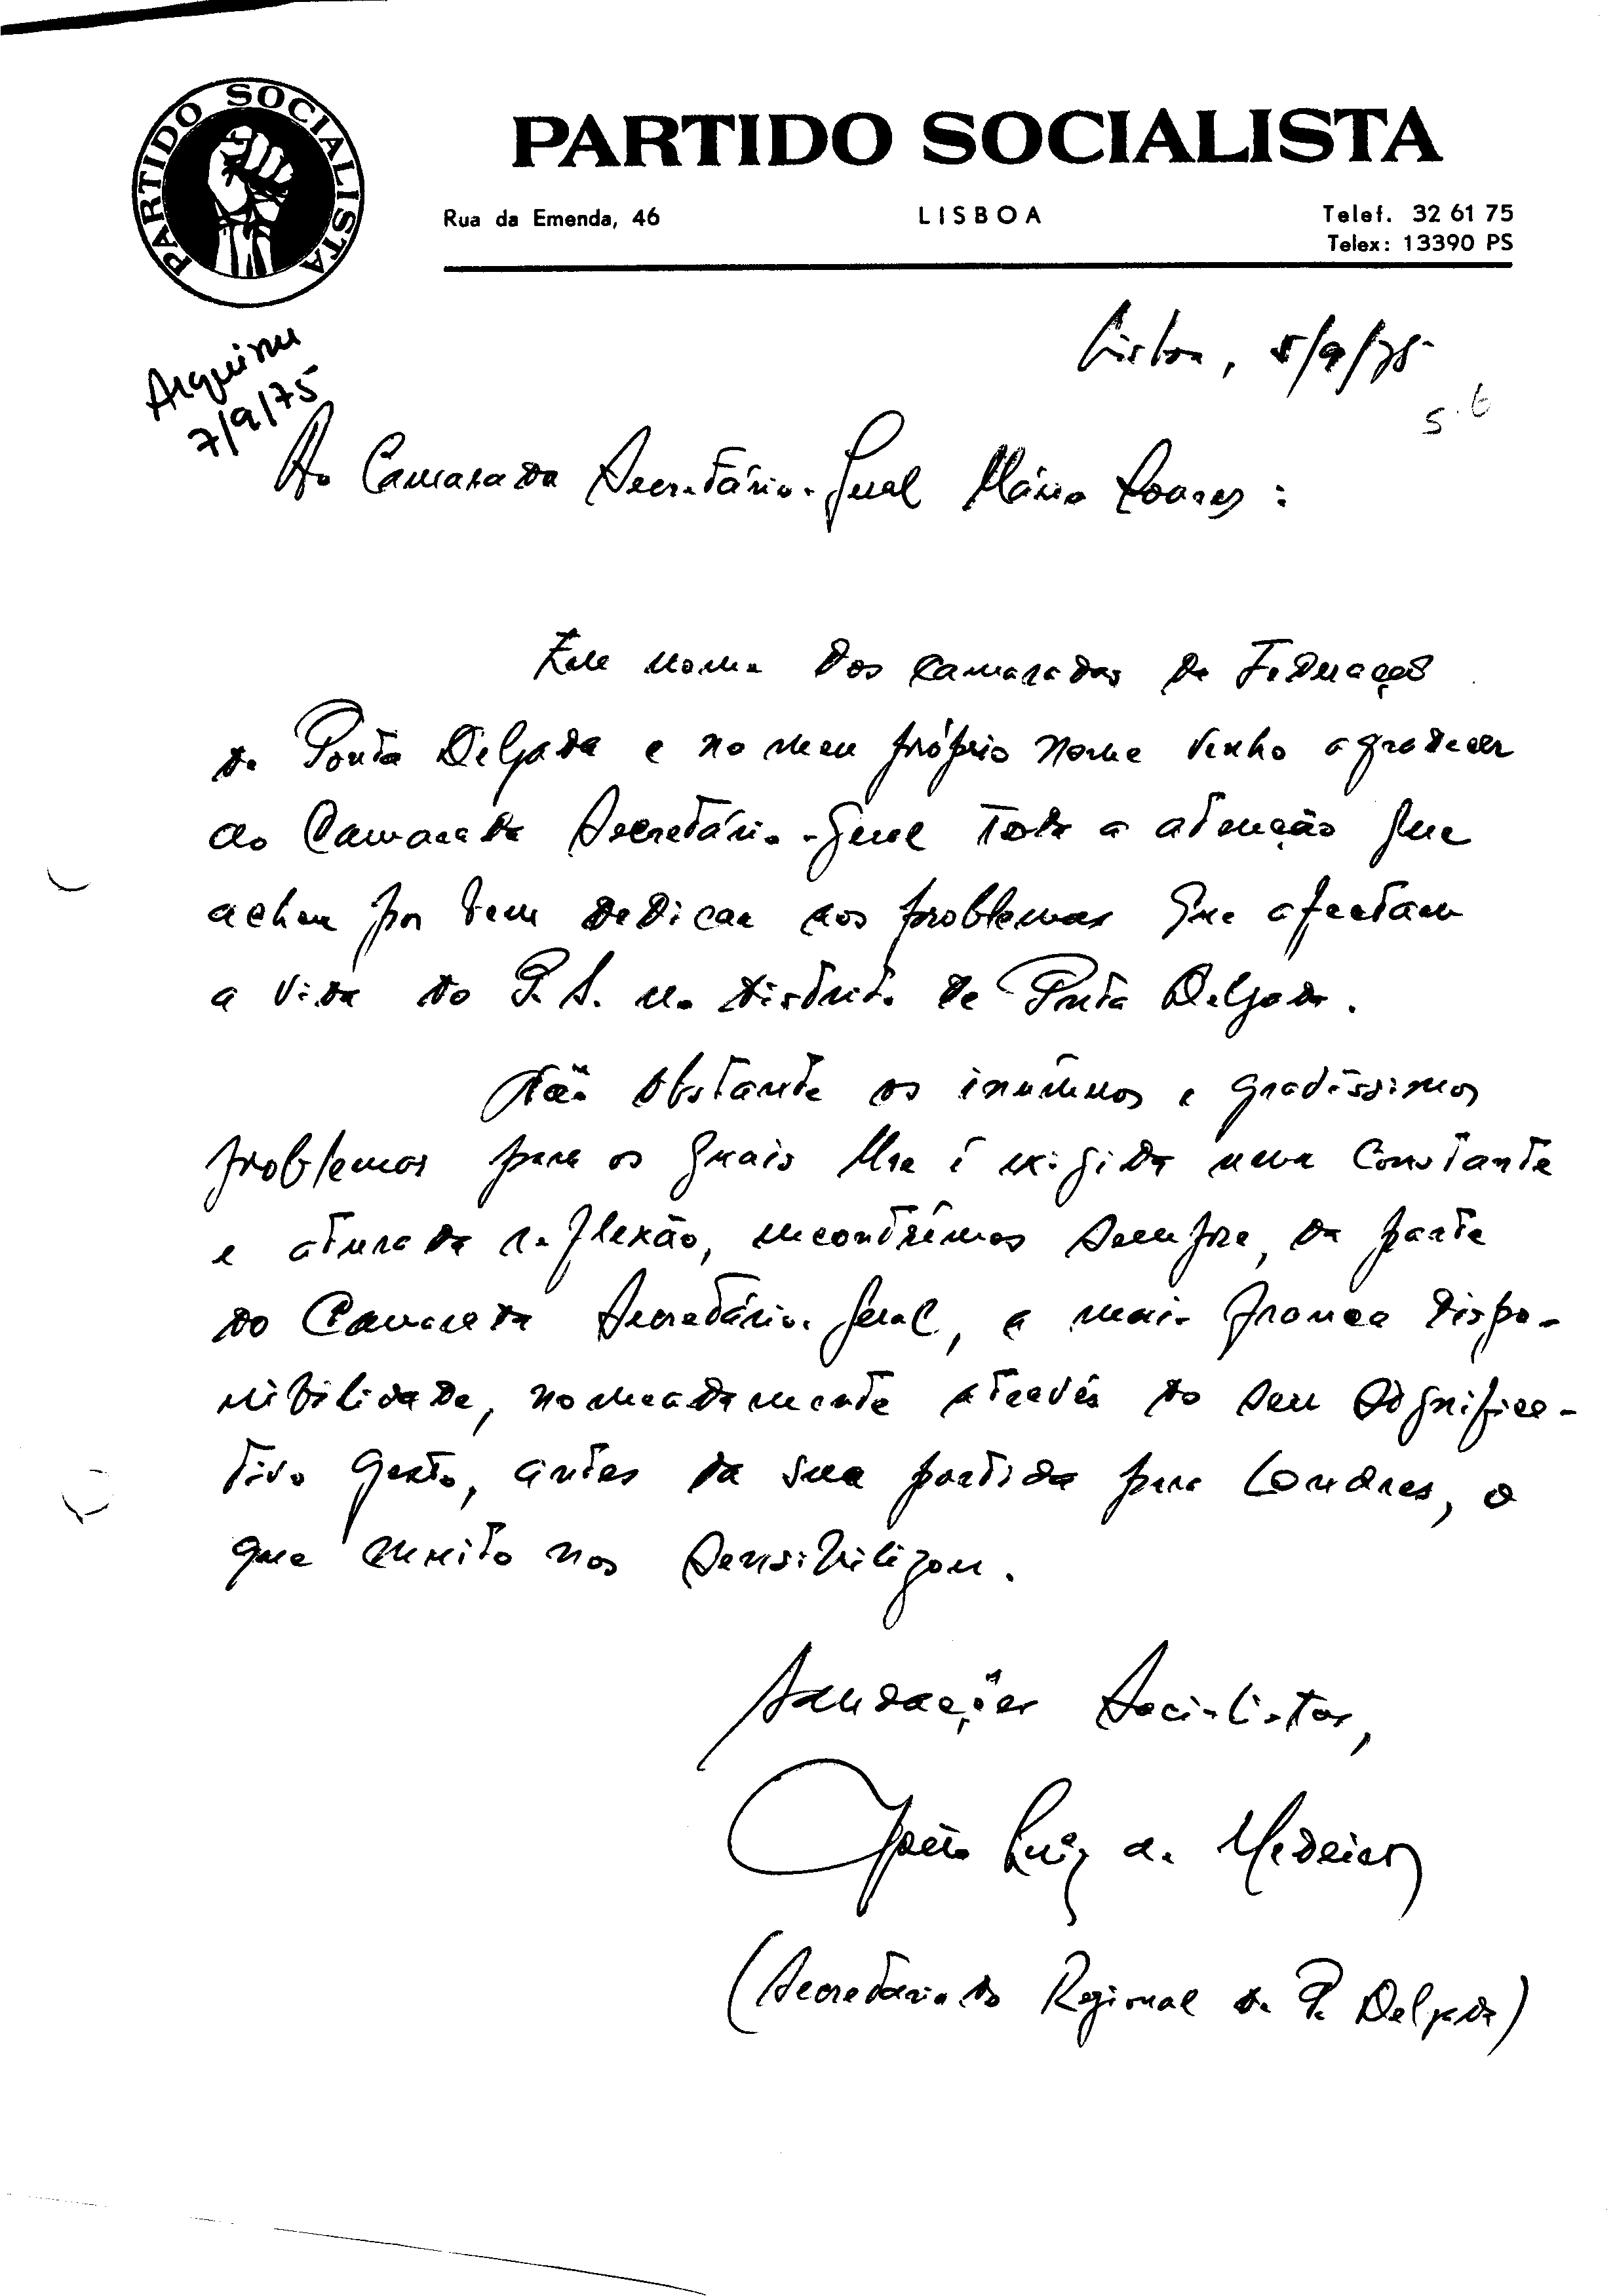 PARTIDO SOCIALISTA
PARTIDO SOCIALISTA
Rua da Emenda, 46 LISBOA Telef. 32 61 75
Telex: 13390 PS
Lisboa, 5/9/75
Arquive
7/9/75
Ao Camarada Secretário-Geral Mário Soares:
Em nome dos camaradas da Federação
de Ponta Delgada e no meu próprio nome venho agradecer
ao Camarada Secretário-Geral toda a atenção que
achou por bem dedicar aos problemas que afectam
a vida do P. S. no distrito de Ponta Delgada.
Não obstante os inúmeros e gravíssimos
problemas para os quais lhe é exigida uma constante
e aturada reflexão, encontrámos sempre, da parte
do Camarada Secretário-Geral, a mais franca dispo-
nibilidade, nomeadamente através do seu significa-
tivo gesto, antes da sua partida para Londres, o
que muito nos sensibilizou.
Saudações Socialistas,
João Luiz de Medeiros
(Secretariado Regional de P. Delgada)